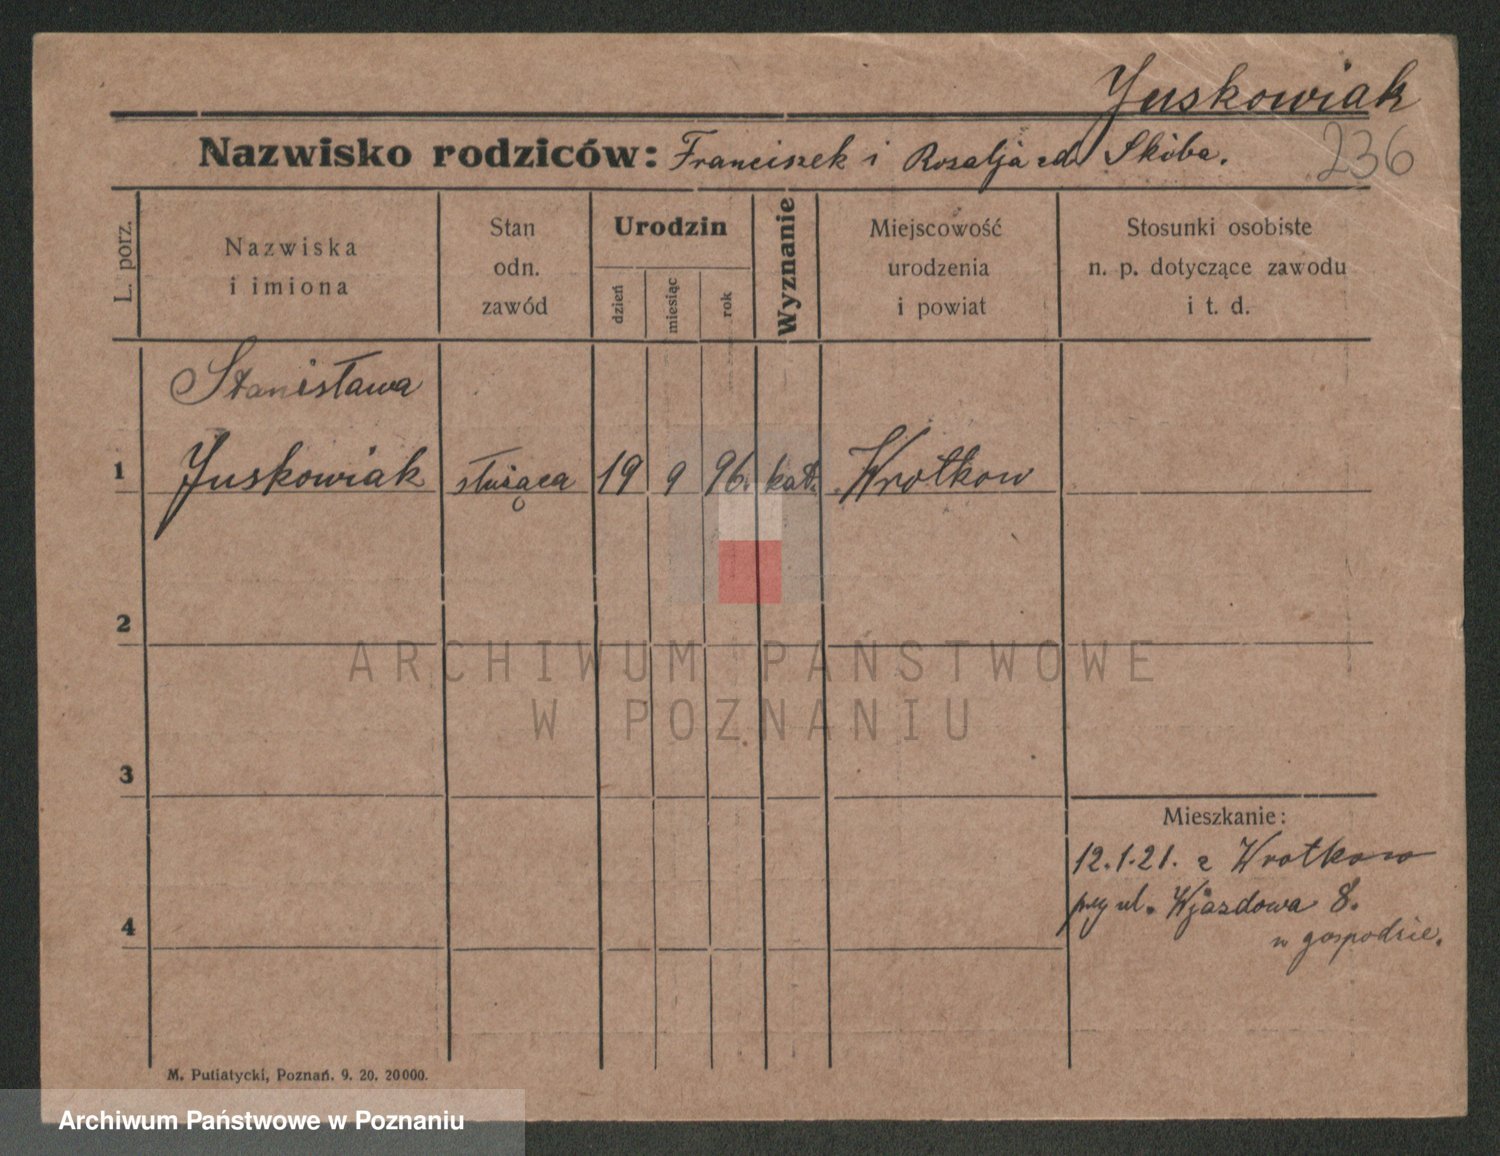 Juskowiak
Nazwisko rodziców: Franciszek i Rozalja zd. Skóba.
236
L. porz.
Nazwiska
i imiona
Stan
odn.
zawód
Urodzin
dzień
miesiąc
rok
Wyznanie
Miejscowość
urodzenia
i powiat
Stosunki osobiste
n. p. dotyczące zawodu
i t. d.
Stanisława
1 Juskowiak służąca 19 9 96. kat. Wrotkow
2
ARCHIWUM PAŃSTWOWE
W POZNANIU
3
Mieszkanie:
12.1.21. z Wrotkow
przy ul. Wjazdowa 8.
w gospodzie.
4
M. Putiatycki, Poznań. 9. 20. 20000.
Archiwum Państwowe w Poznaniu